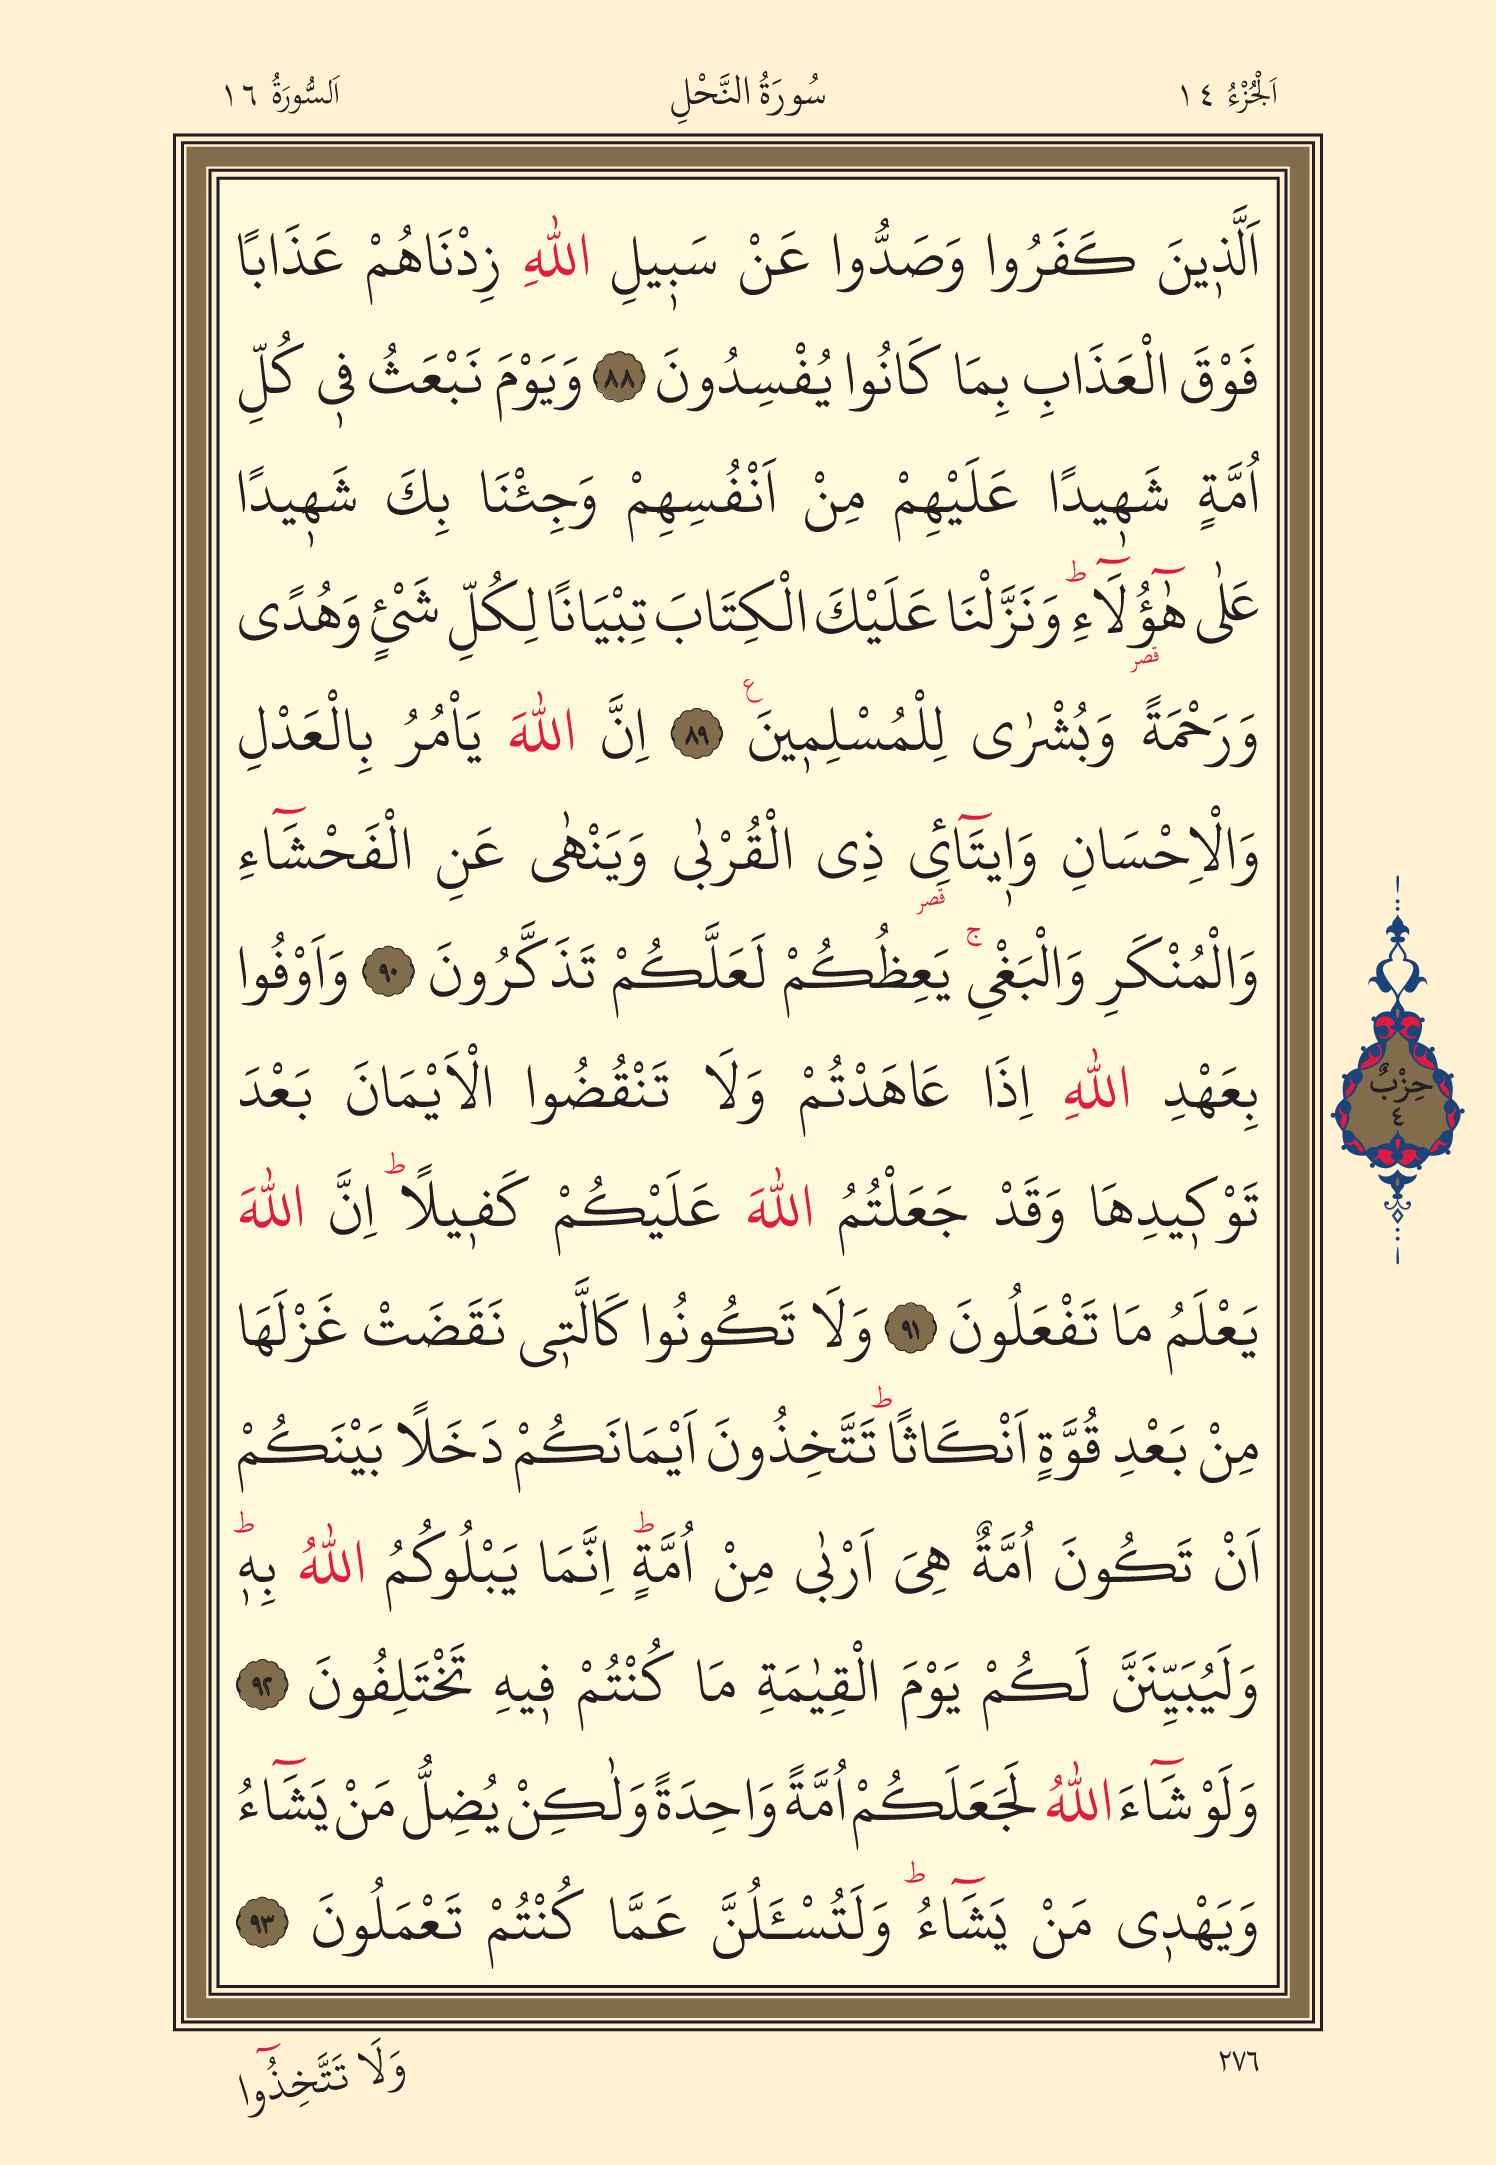 اَلْجُزْءُ ١٤ سُورَةُ النَّحْلِ اَلسُّورَةُ ١٦
اَلَّذ۪ينَ كَفَرُوا وَصَدُّوا عَنْ سَب۪يلِ اللّٰهِ زِدْنَاهُمْ عَذَابًا
فَوْقَ الْعَذَابِ بِمَا كَانُوا يُفْسِدُونَ ٨٨ وَيَوْمَ نَبْعَثُ ف۪ى كُلِّ
اُمَّةٍ شَه۪يدًا عَلَيْهِمْ مِنْ اَنْفُسِهِمْ وَجِئْنَا بِكَ شَه۪يدًا
عَلٰى هٰٓؤُ۬لَٓاءِۜ وَنَزَّلْنَا عَلَيْكَ الْكِتَابَ تِبْيَانًا لِكُلِّ شَىْءٍ وَهُدًى
قصر
وَرَحْمَةً وَبُشْرٰى لِلْمُسْلِم۪ينَ ع ٨٩ اِنَّ اللّٰهَ يَاْمُرُ بِالْعَدْلِ
وَالْاِحْسَانِ وَا۪يتَٓائِ ذِى الْقُرْبٰى وَيَنْهٰى عَنِ الْفَحْشَٓاءِ
قصر
وَالْمُنْكَرِ وَالْبَغْىِۚ يَعِظُكُمْ لَعَلَّكُمْ تَذَكَّرُونَ ٩٠ وَاَوْفُوا
بِعَهْدِ اللّٰهِ اِذَا عَاهَدْتُمْ وَلَا تَنْقُضُوا الْاَيْمَانَ بَعْدَ
حِزْبٌ
٤
تَوْك۪يدِهَا وَقَدْ جَعَلْتُمُ اللّٰهَ عَلَيْكُمْ كَف۪يلًاۜ اِنَّ اللّٰهَ
يَعْلَمُ مَا تَفْعَلُونَ ٩١ وَلَا تَكُونُوا كَالَّت۪ى نَقَضَتْ غَزْلَهَا
مِنْ بَعْدِ قُوَّةٍ اَنْكَاثًاۜ تَتَّخِذُونَ اَيْمَانَكُمْ دَخَلًا بَيْنَكُمْ
اَنْ تَكُونَ اُمَّةٌ هِىَ اَرْبٰى مِنْ اُمَّةٍۜ اِنَّمَا يَبْلُوكُمُ اللّٰهُ بِه۪ۜ
وَلَيُبَيِّنَنَّ لَكُمْ يَوْمَ الْقِيٰمَةِ مَا كُنْتُمْ ف۪يهِ تَخْتَلِفُونَ ٩٢
وَلَوْ شَٓاءَ اللّٰهُ لَجَعَلَكُمْ اُمَّةً وَاحِدَةً وَلٰكِنْ يُضِلُّ مَنْ يَشَٓاءُ
وَيَهْد۪ى مَنْ يَشَٓاءُۜ وَلَتُسْـَٔلُنَّ عَمَّا كُنْتُمْ تَعْمَلُونَ ٩٣
٢٧٦ وَلَا تَتَّخِذُٓوا